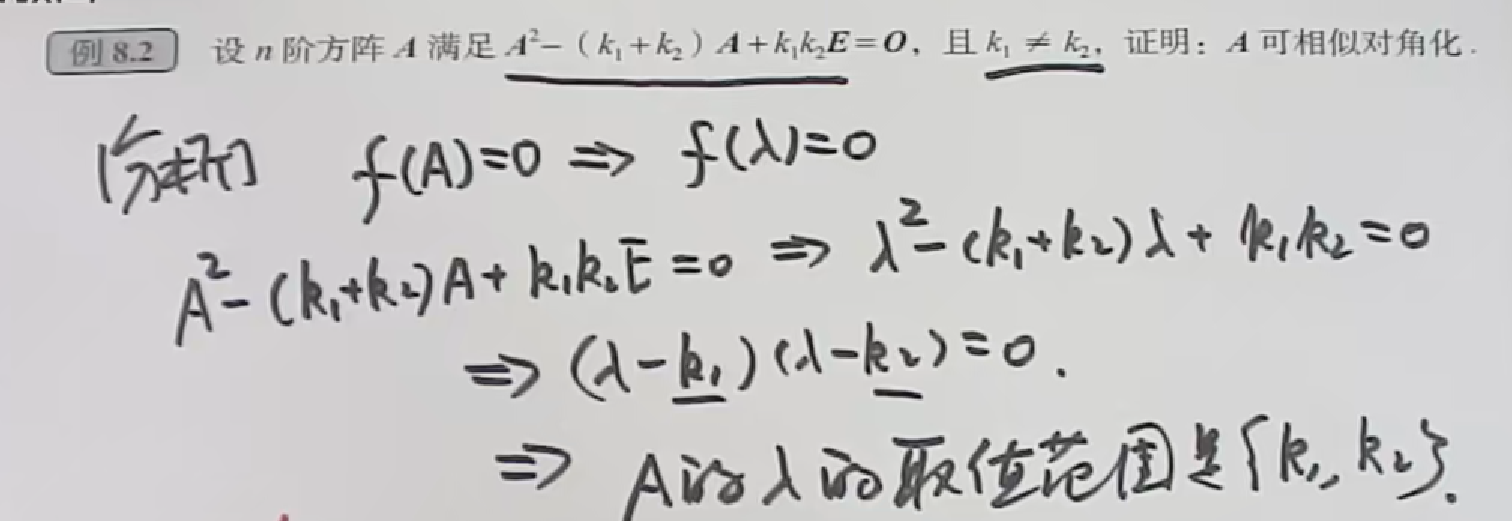 例 8.2 设 n 阶方阵 A 满足 A²-(k₁+k₂)A+k₁k₂E=O, 且 k₁ ≠ k₂, 证明: A 可相似对角化.
[分析] f(A)=0 ⇒ f(λ)=0
A²-(k₁+k₂)A+k₁k₂E=0 ⇒ λ²-(k₁+k₂)λ+k₁k₂=0
⇒ (λ-k₁)(λ-k₂)=0.
⇒ A的λ的取值范围是{k₁,k₂}.